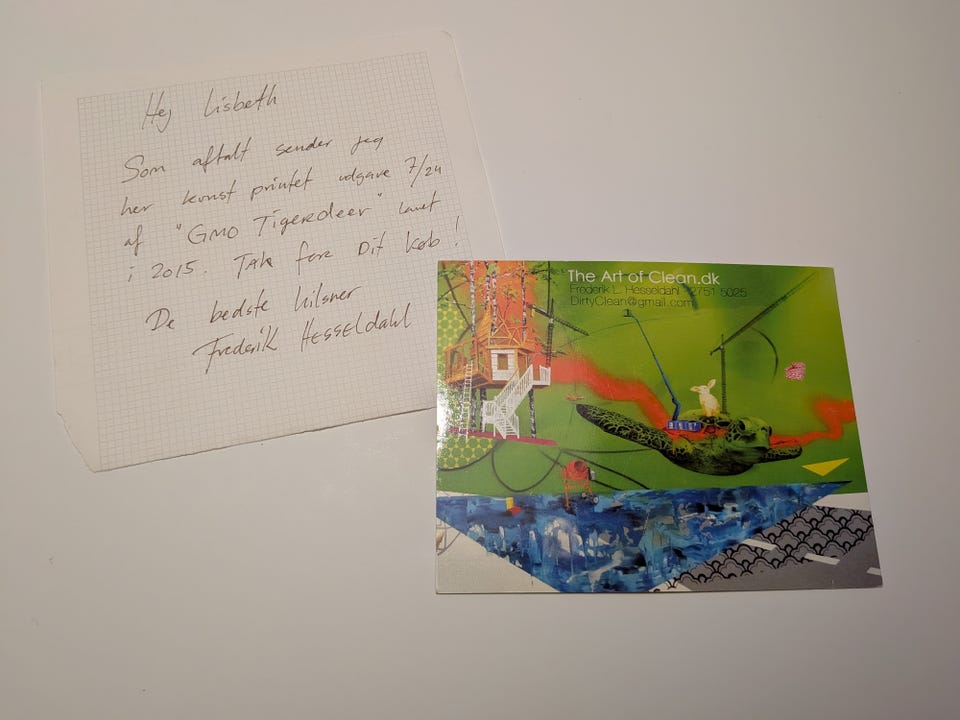 Hej Lisbeth
Som aftalt sender jeg
her kunst printet udgave 7/24
af "GMO Tigerdeer" lavet
i 2015. Tak for Dit køb!
De bedste hilsner
Frederik Hesseldahl
The Art of Clean.dk
Frederik L. Hesseldahl 2751 5025
DirtyClean@gmail.com